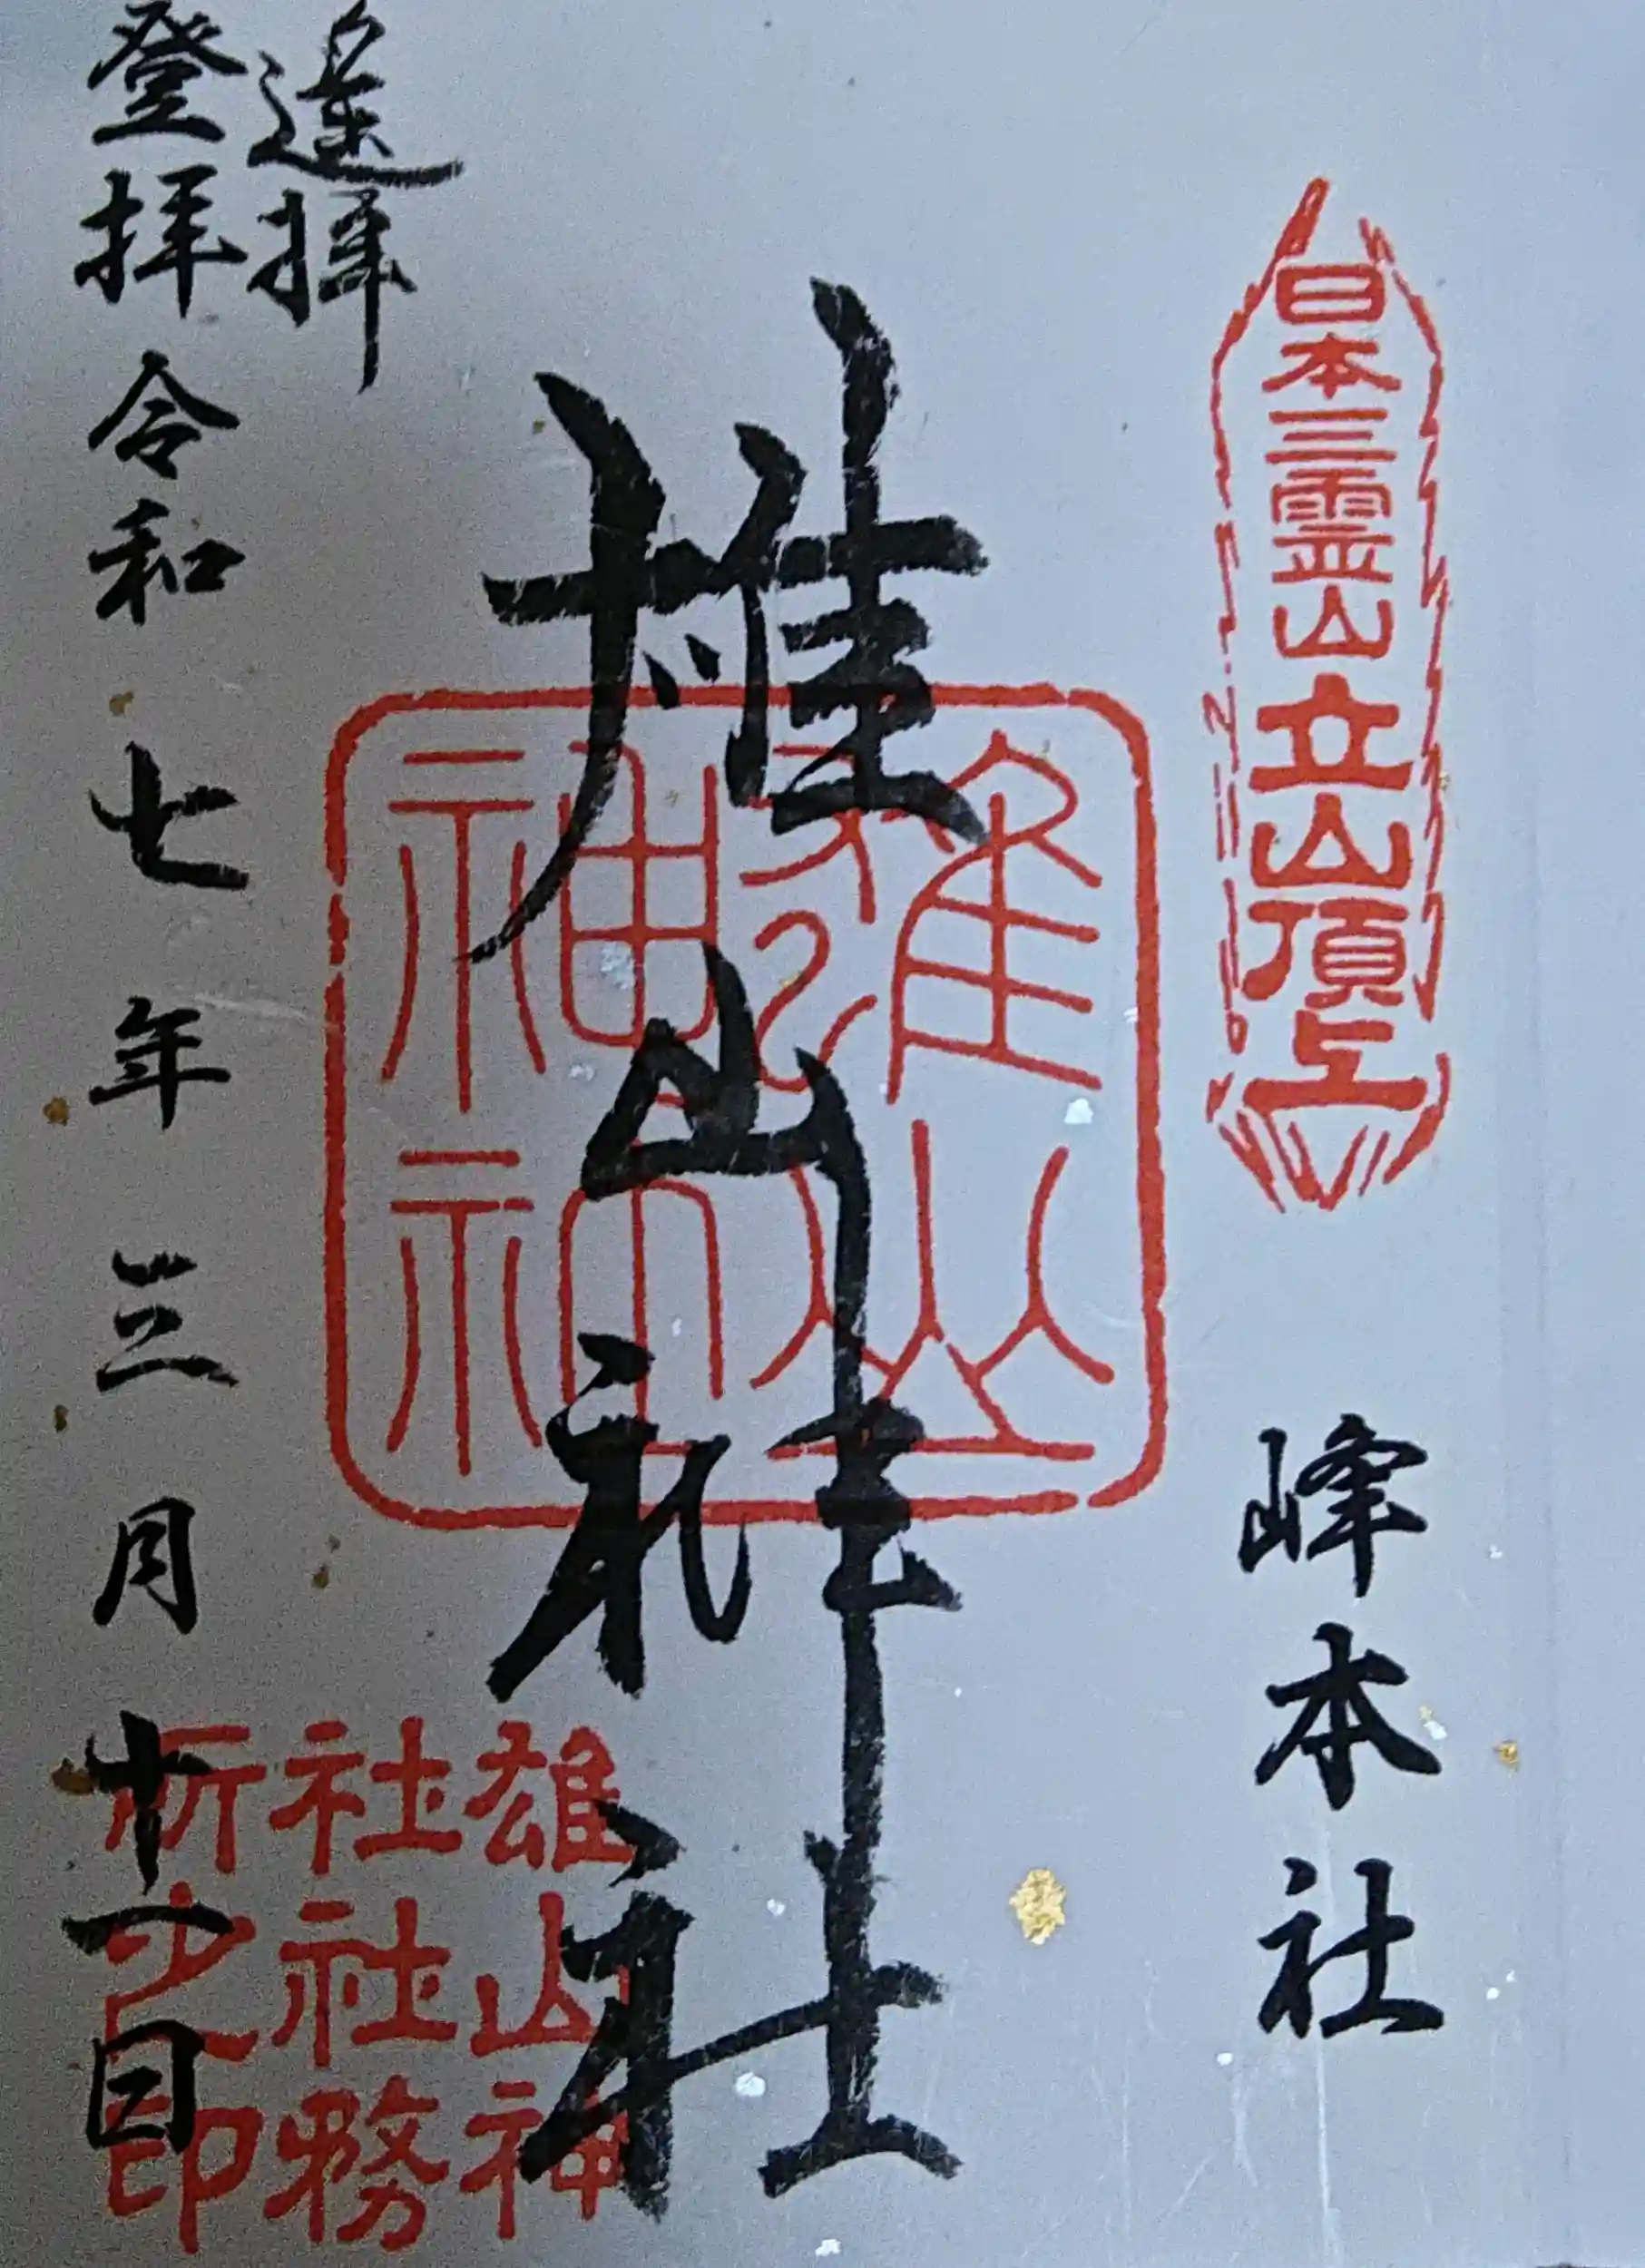 日本三霊山立山頂上
峰本社
雄山神社
雄山神社
雄山神
社社務
所之印
遥拝
登拝 令和七年三月十一日